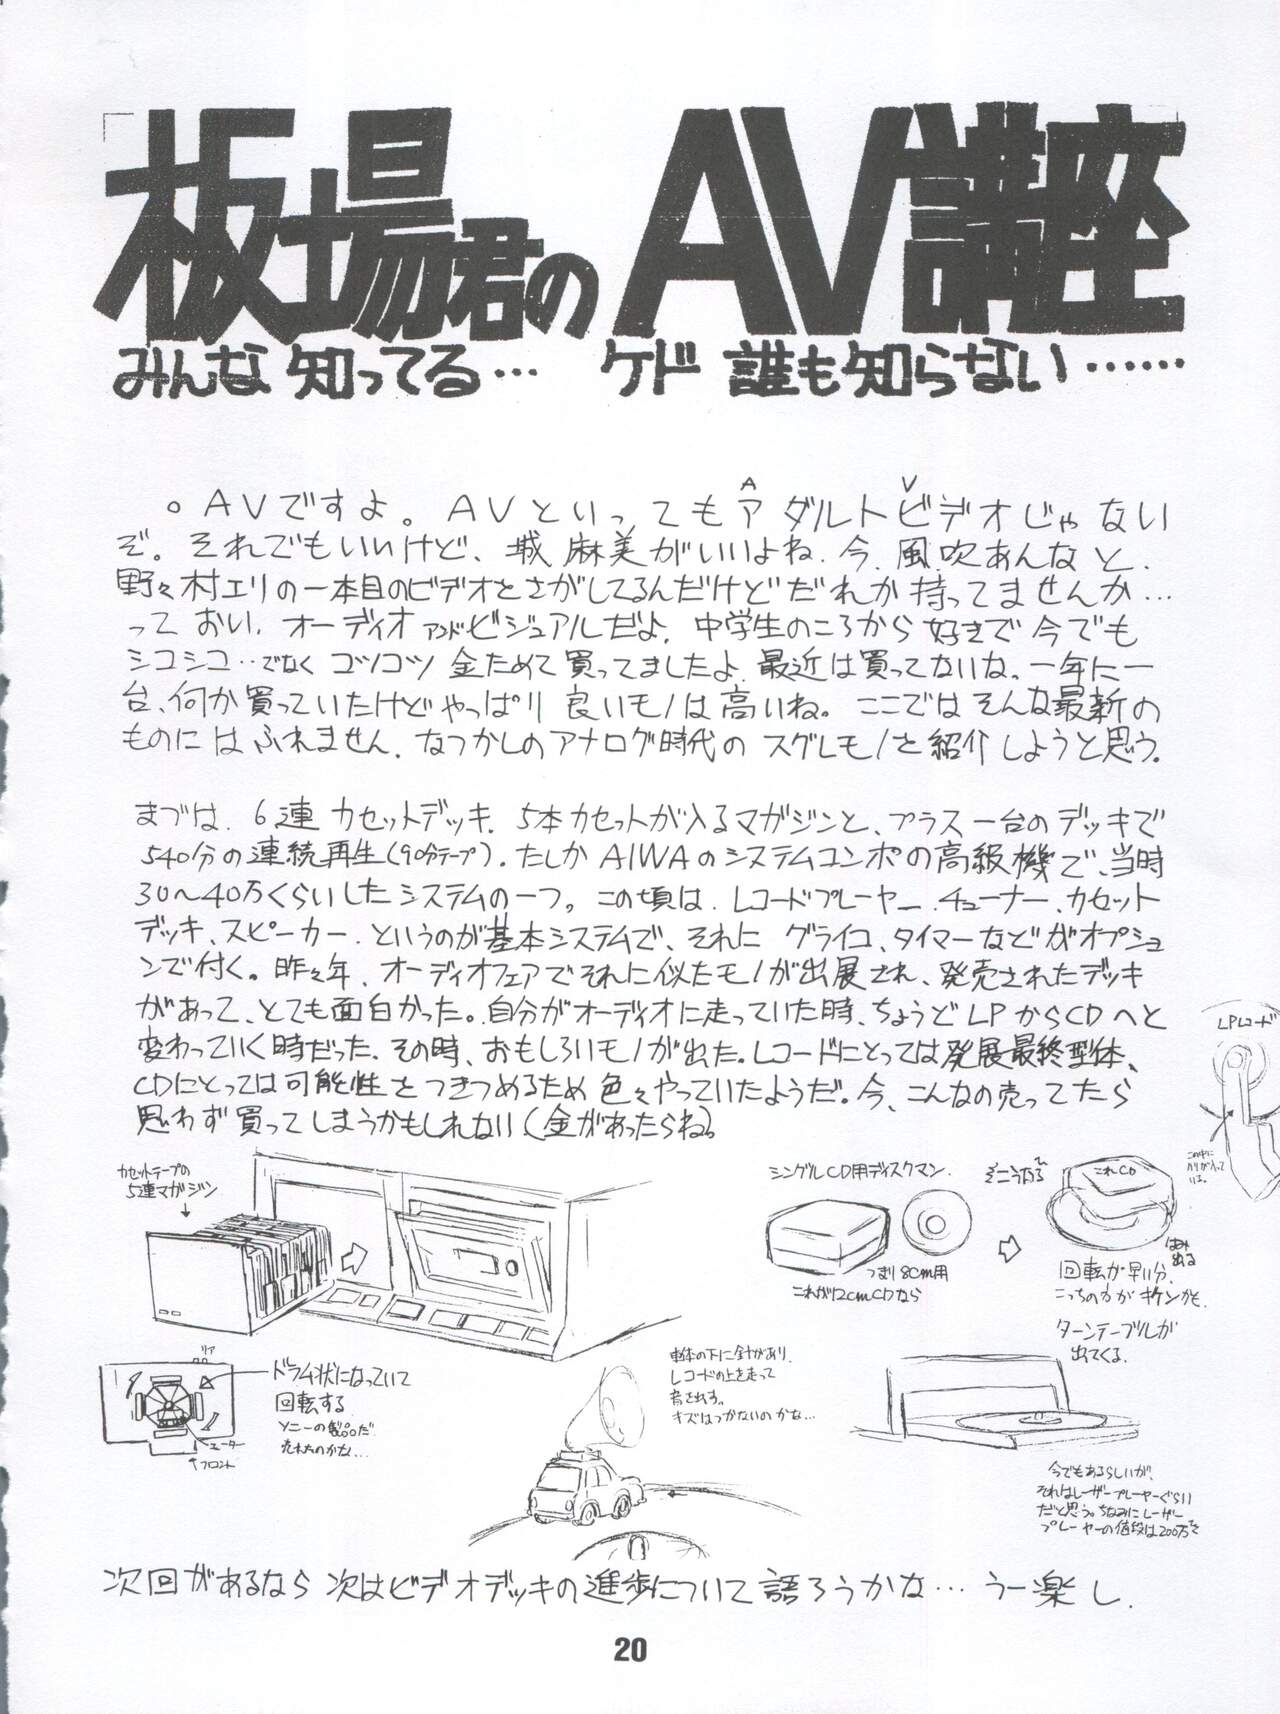 板場君のAV講座
みんな知ってる… ケド 誰も知らない……
A V
。AVですよ。AVといってもアダルトビデオじゃない
ぞ。それでもいいけど、城麻美がいいよね.今、風吹あんなと、
野々村エリの一本目のビデオとさがしてるんだけどだれか持ってませんか…
っておい、オーディオアンドビジュアルだよ.中学生のころから好きで今でも
シコシコ…でなくコツコツ金ためて買ってましたよ.最近は買ってないな。一年に一
台、何か買っていたけどやっぱり良いモノは高いね。ここではそんな最新の
ものにはふれません.なつかしのアナログ時代のスグレモノを紹介しようと思う。
まずは.6連カセットデッキ.5本カセットが入るマガジンと、プラス一台のデッキで
540分の連続再生(90分テープ).たしかAIWAのシステムコンポの高級機で、当時
30〜40万くらいしたシステムの一つ。この頃は.レコードプレーヤー.チューナー、カセット
デッキ、スピーカー.というのが基本システムで、それにグライコ、タイマーなどがオプショ
ンで付く。昨々年.オーディオフェアでそれに似たモノが出展され、発売されたデッキ
があって、とても面白かった。自分がオーディオに走っていた時、ちょうどLPからCDへと
変わっていく時だった.その時、おもしろいモノが出た。レコードにとっては発展最終型体、
CDにとっては可能性をつきつめるため色々やっていたようだ。今、こんなの売ってたら
思わず買ってしまうかもしれない(金があったらね。
LPレコード
この中に
ハリが入って
いる。
カセットテープの
5連マガジン
シングルCD用ディスクマン.
つまり8cm用
これが12cmCDなら
そこうなる
これCD
はみ
出る
回転が早い分.
こっちの方がキケンかも.
ターンテーブルが
出てくる.
リア
ドラム状になっていて
回転する
ソニーの製品だ
売れたのかな…
フロント
車体の下に針があり.
レコードの上を走って
音を出す。
キズはつかないのかな…
今でもあるらしいが、
それはレーザープレーヤーぐらい
だと思う。ちなみにレーザー
プレーヤーの値段は200万
次回があるなら次はビデオデッキの進歩について語ろうかな…う一楽し.
20